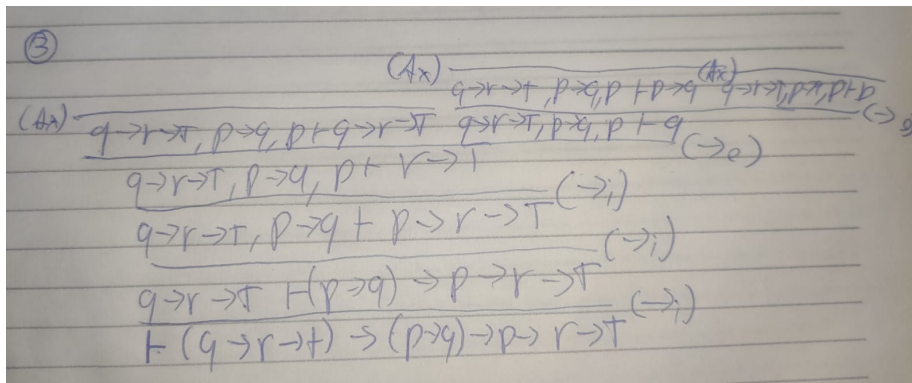 ③
(Ax) (Ax)
q→r→t, p→q, p ⊢ p→q q→r→t, p→q, p ⊢ p
(Ax) (→e)
q→r→t, p→q, p ⊢ q→r→t q→r→t, p→q, p ⊢ q
(→e)
q→r→t, p→q, p ⊢ r→t
(→i)
q→r→t, p→q ⊢ p→r→t
(→i)
q→r→t ⊢ (p→q)→p→r→t
(→i)
⊢ (q→r→t)→(p→q)→p→r→t